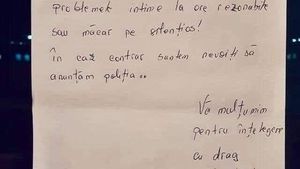 problemele intime la ore rezonabile
sau măcar pe silențios!
În caz contrar suntem nevoiți să
anunțăm poliția..
Vă mulțumim
pentru înțelegere
cu drag